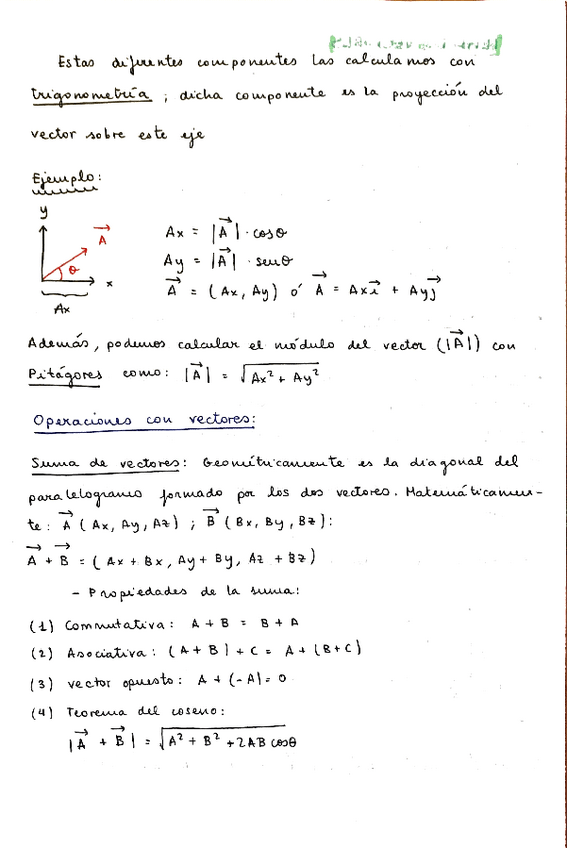 Estas diferentes componentes las calculamos con
trigonometría ; dicha componente es la proyección del
vector sobre este eje
Ejemplo:
y
A
θ
x
Ax
Ax = |A| · cosθ
Ay = |A| · senθ
A = (Ax, Ay) ó A = Axi + Ayj
Además, podemos calcular el módulo del vector (|A|) con
Pitágores como: |A| = √Ax² + Ay²
Operaciones con vectores:
Suma de vectores: Geométricamente es la diagonal del
paralelogramo formado por los dos vectores. Matemáticamen-
te: A (Ax, Ay, Az) ; B (Bx, By, Bz):
A + B = (Ax + Bx, Ay + By, Az + Bz)
- Propiedades de la suma:
(1) Conmutativa: A + B = B + A
(2) Asociativa: (A + B) + C = A + (B+C)
(3) vector opuesto: A + (-A) = 0
(4) Teorema del coseno:
|A + B| = √A² + B² + 2AB cosθ